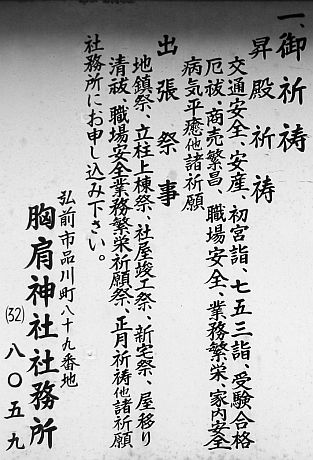 一、御祈祷
昇殿祈祷
交通安全、安産、初宮詣、七五三詣、受験合格
厄祓、商売繁昌、職場安全、業務繁栄、家内安全
病気平癒他諸祈願
出張祭事
地鎮祭、立柱上棟祭、社屋竣工祭、新宅祭、屋移り
清祓、職場安全業務繁栄祈願祭、正月祈祷他諸祈願
社務所にお申し込み下さい。
弘前市品川町八十九番地
胸肩神社社務所
(32)八〇五九